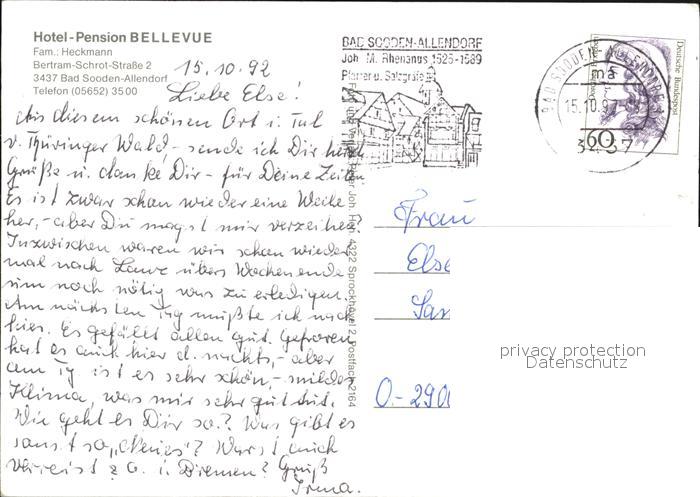 Hotel-Pension BELLEVUE
Fam.: Heckmann
Bertram-Schrot-Straße 2
3437 Bad Sooden-Allendorf
Telefon (05652) 3500
15.10.92
Liebe Else!
Aus diesem schönen Ort i. Tal
v. Thüringer Wald, sende ich Dir herzl
Grüße u. danke Dir - für Deine Zeilen
Es ist zwar schon wieder eine Weile
her, - aber Du magst mir verzeihen.
Inzwischen waren wir schon wieder
mal nach übers Wochenende
um noch nötig was zu erledigen.
Am nächsten Tag mußte ich nach
hier. Es gefällt allen gut. Gefroren
hat es auch hier d. nachts, - aber
am Tg ist es sehr schön, - mildes
Klima, was mir sehr gut tut.
Wie geht es Dir so? Was gibt es
sonst so „Neues"? Warst auch
verreist z. B. i. Bremen? Gruß
Irma.
BAD SOODEN-ALLENDORF
Joh. M. Rhenanus 1525-1589
Pfarrer u. Salzgräfe
BAD SOODEN-ALLENDORF 1
ma
15.10.92
3437
Deutsche Bundespost
60
4322 Sprockhövel 2, Postfach 2164
Frau
Else
O-290
privacy protection
Datenschutz